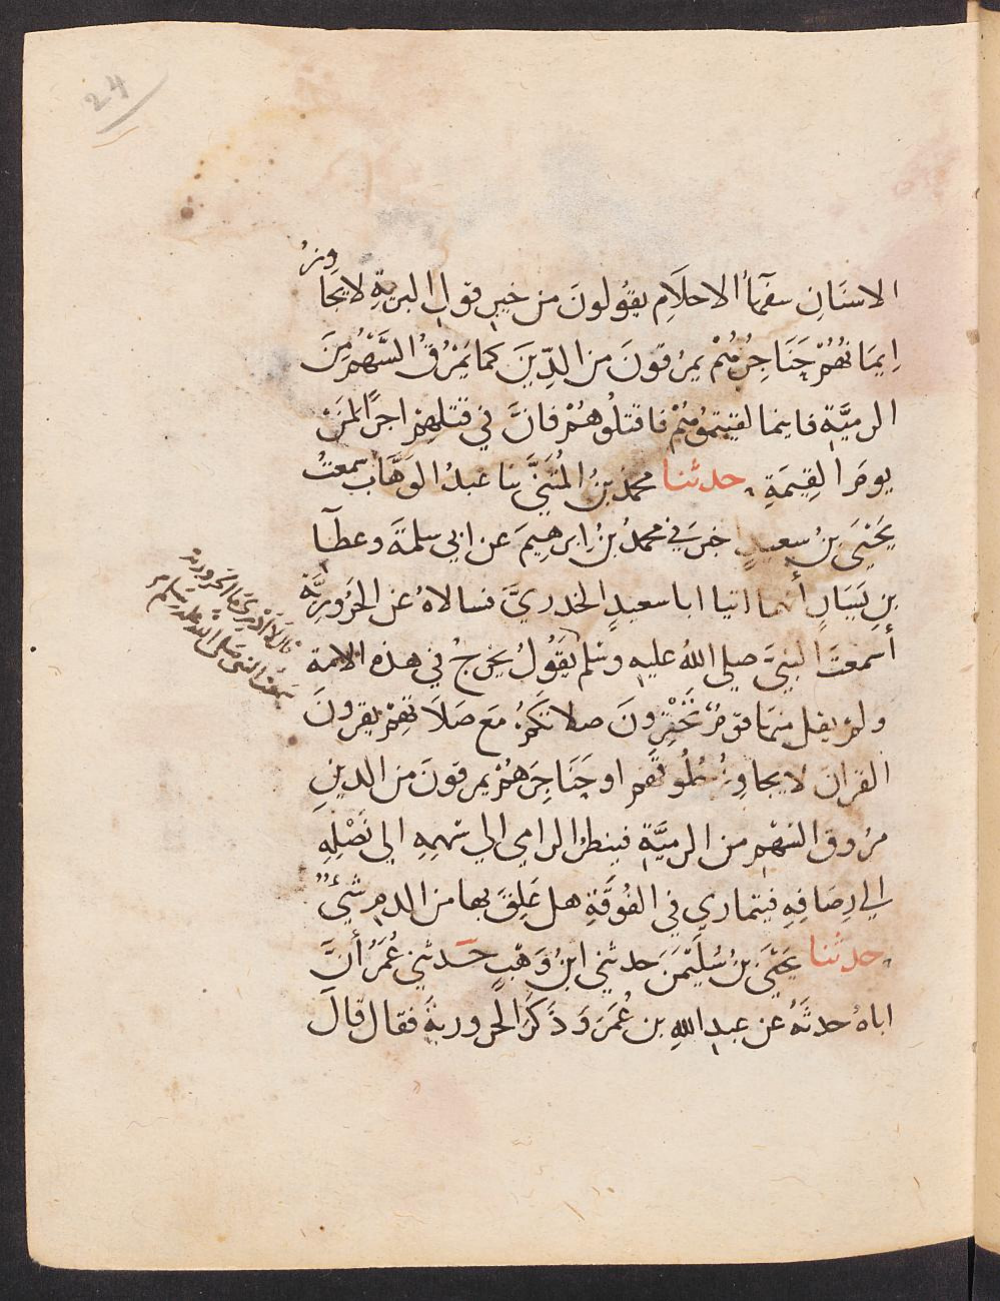 24
الاسنَانِ سفَهآءُ الاحلَامِ يقُولونَ من خيرِ قولِ البريةِ لايجاوِزُ
اِيمَانُهُمْ حَنَاجِرَهُمْ يمرُقونَ من الدِّينَ كما يَمْرُقُ السَّهْمُ مِنَ
الرميَّةِ فاينما لقيتموُهُمْ فاقتلُوهُمْ فانَّ في قتلهِمْ اجرًا لمَنْ
يومَ القِيمَةِ حدثنا محمدُ بنُ المُثنَّى نا عبدُ الوهَّاب سمعتُ
يَحْيَى بنُ سعيدٍ اخبرَني محمدُ بنُ ابرهيمَ عن ابي سلمةَ وعطآءِ
بنِ يَسَارٍ أنهما اتيا ابا سعيدٍ الخدريَّ فسالاهُ عن الحَرُورِيَّةِ
قال لَا أدْرِي مَا الحَرورية
سَمِعْتُ النبيَ صَلى الله عليه وسلم
أسمعتَ النبيَّ صلي اللهُ عليهِ وسلم يقُولُ يخرجُ في هذه الامة
ولم يقل منهَا قومٌ تَحْقِرونَ صلاتَكمْ مَع صَلَاتهِمْ يقرونَ
القران لايجاوِزُ حُلُوقَهم او حَنَاجِرَهُمْ يمرقونَ من الدينِ
مرُوقَ السَّهْمِ من الرميَّةِ فينظرُ الرامي الي سَهمِهِ الي نَصْلِهِ
الي رِصَافِهِ فيتماري في الفُوقَةِ هل عَلِقَ بها من الدمِ شيءٌ
حدثنا يحيَى بنُ سُلَيْمنَ حدثني ابنُ وَهْبٍ حَدثني عُمَرُ أنَّ
اباهُ حدثَهُ عن عبدِ اللهِ بن عُمَرَ وَذَكَرَ الحَروريةَ فقال قالَ